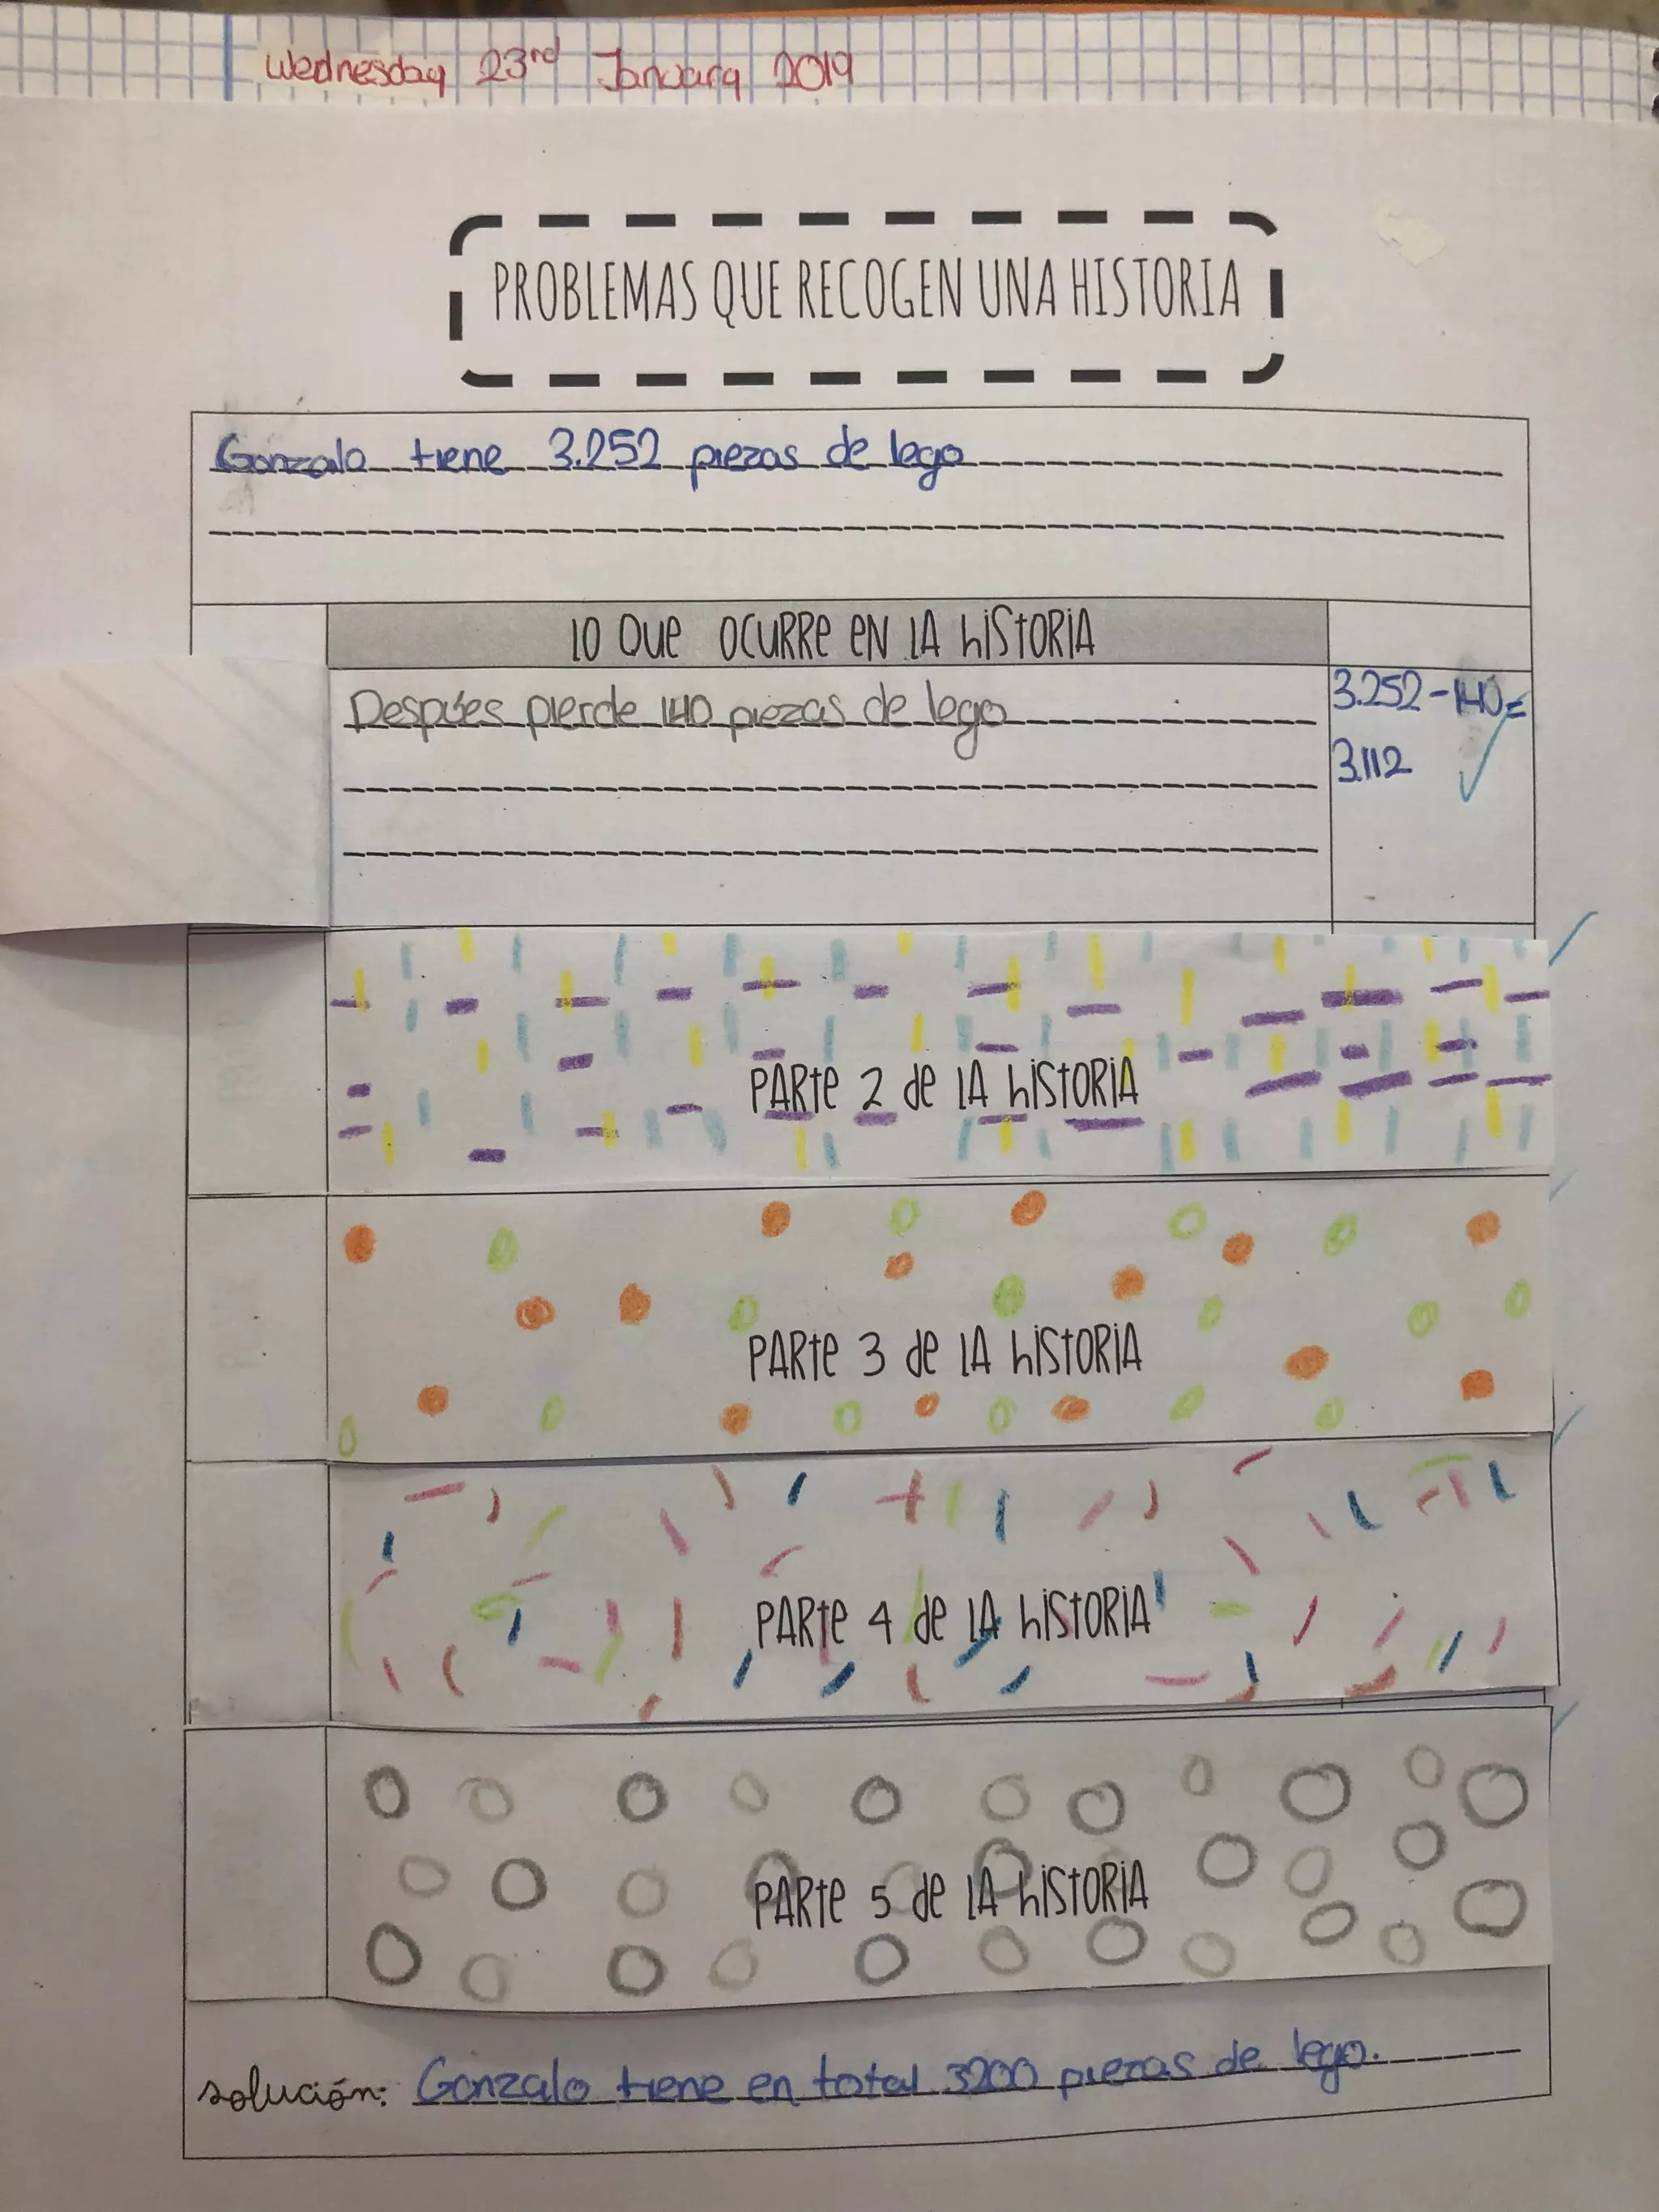 Wednesday 23rd January 2019
PROBLEMAS QUE RECOGEN UNA HISTORIA
Gonzalo tiene 3.252 piezas de lego
LO QUE OCURRE EN LA HISTORIA
Despúes pierde 140 piezas de lego
3.252-140=
3.112
PARTE 2 de LA HISTORIA
PARTE 3 de LA HISTORIA
PARTE 4 de LA HISTORIA
PARTE 5 de LA HISTORIA
solución: Gonzalo tiene en total 3200 piezas de lego.